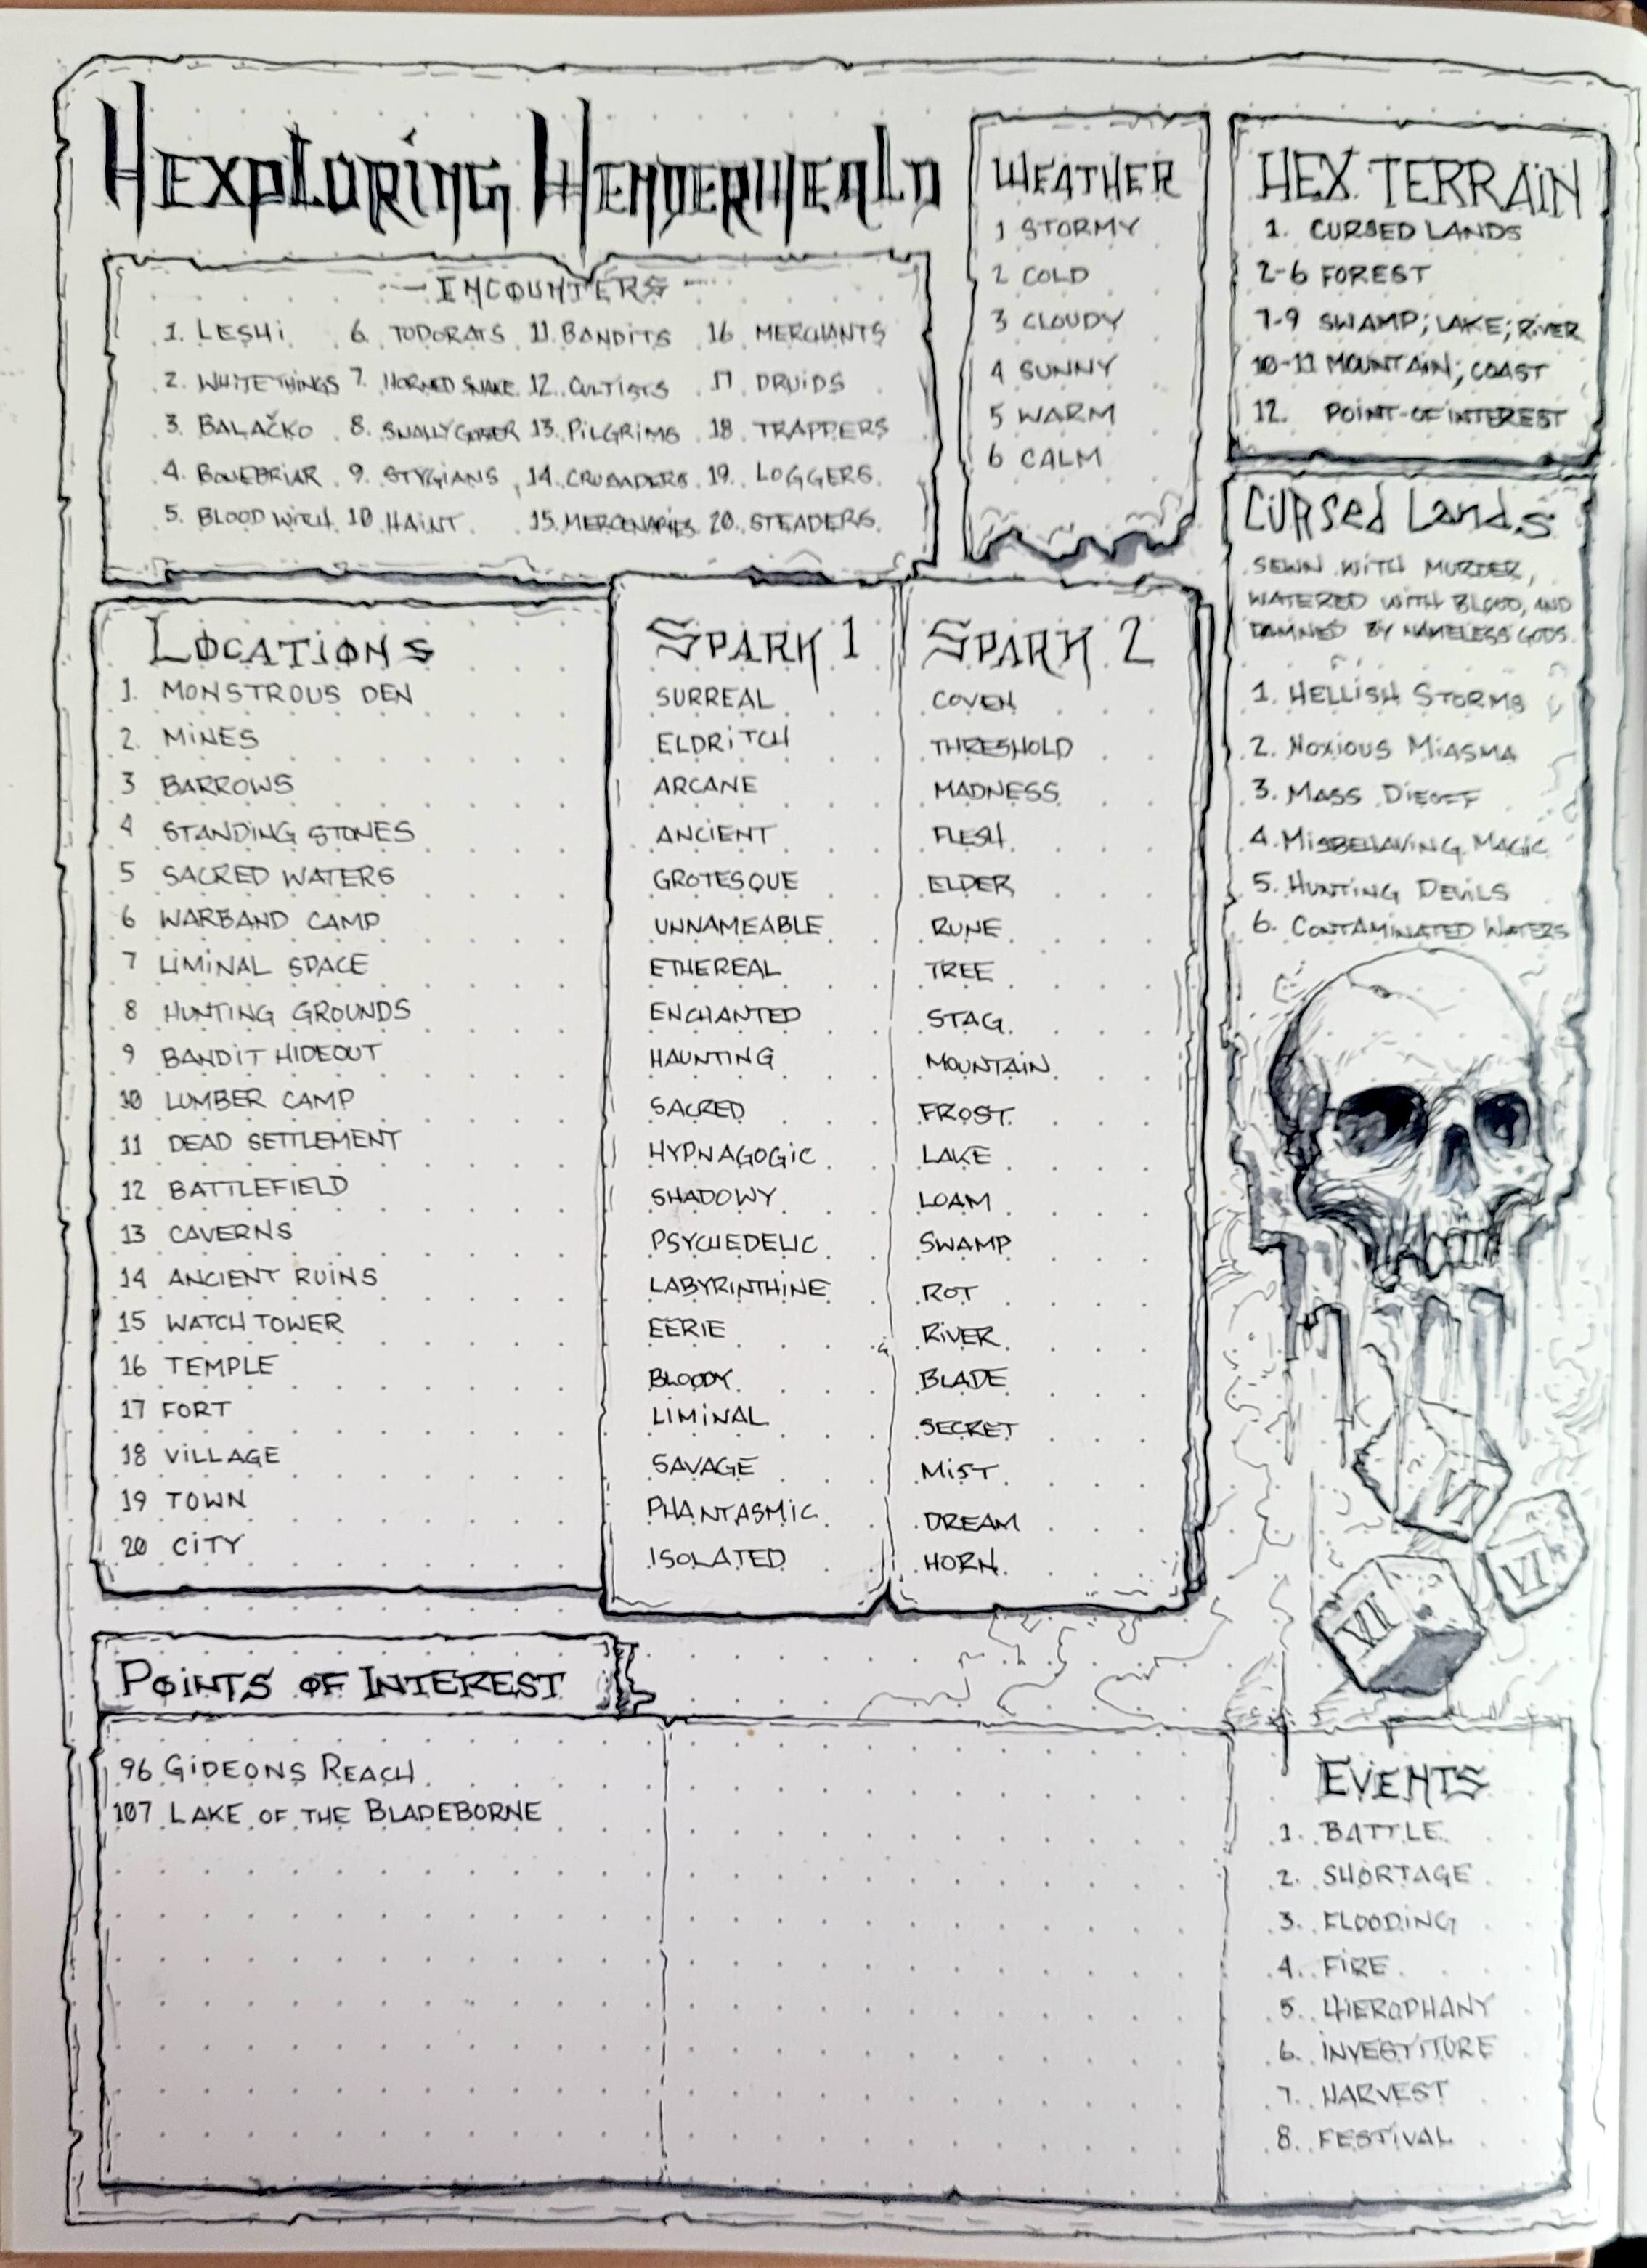 HEXPLORING WENDERWEALD
ENCOUNTERS
1. LESHI
2. WHITE THINGS
3. BALAČKO
4. BONEBRIAR
5. BLOOD WITCH
6. TODORATS
7. HORNED SNAKE
8. SNALLYGASTER
9. STYGIANS
10 HAINT
11 BANDITS
12. CULTISTS
13. PILGRIMS
14. CRUSADERS
15. MERCENARIES
16 MERCHANTS
17 DRUIDS
18. TRAPPERS
19. LOGGERS
20. STEADERS
WEATHER
1 STORMY
2 COLD
3 CLOUDY
4 SUNNY
5 WARM
6 CALM
HEX TERRAIN
1. CURSED LANDS
2-6 FOREST
7-9 SWAMP; LAKE; RIVER
10-11 MOUNTAIN; COAST
12. POINT-OF INTEREST
CURSED LANDS
SEWN WITH MURDER,
WATERED WITH BLOOD, AND
DAMNED BY NAMELESS GODS.
1. HELLISH STORMS
2. NOXIOUS MIASMA
3. MASS DIEOFF
4. MISBEHAVING MAGIC
5. HUNTING DEVILS
6. CONTAMINATED WATERS
LOCATIONS
1. MONSTROUS DEN
2. MINES
3 BARROWS
4 STANDING STONES
5 SACRED WATERS
6 WARBAND CAMP
7 LIMINAL SPACE
8 HUNTING GROUNDS
9 BANDIT HIDEOUT
10 LUMBER CAMP
11 DEAD SETTLEMENT
12 BATTLEFIELD
13 CAVERNS
14 ANCIENT RUINS
15 WATCH TOWER
16 TEMPLE
17 FORT
18 VILLAGE
19 TOWN
20 CITY
SPARK 1
SURREAL
ELDRITCH
ARCANE
ANCIENT
GROTESQUE
UNNAMEABLE
ETHEREAL
ENCHANTED
HAUNTING
SACRED
HYPNAGOGIC
SHADOWY
PSYCHEDELIC
LABYRINTHINE
EERIE
BLOODY
LIMINAL
SAVAGE
PHANTASMIC
ISOLATED
SPARK 2
COVEN
THRESHOLD
MADNESS
FLESH
ELDER
RUNE
TREE
STAG
MOUNTAIN
FROST
LAKE
LOAM
SWAMP
ROT
RIVER
BLADE
SECRET
MIST
DREAM
HORN
VI
VI
VI
POINTS OF INTEREST
96 GIDEONS REACH
107 LAKE OF THE BLADEBORNE
EVENTS
1. BATTLE
2. SHORTAGE
3. FLOODING
4. FIRE
5. HIEROPHANY
6. INVESTITURE
7. HARVEST
8. FESTIVAL